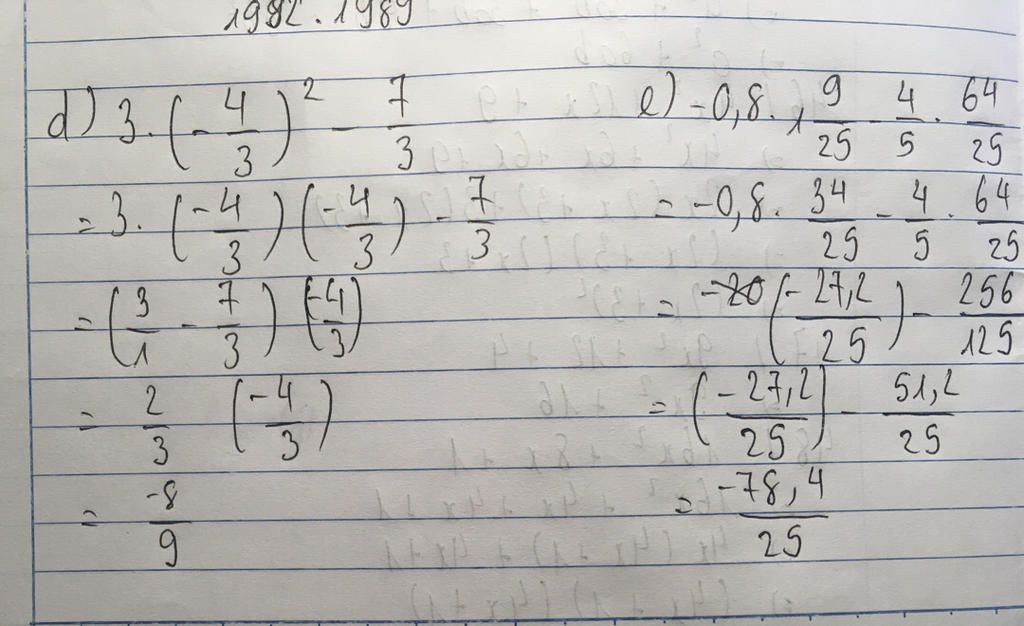 1992.1989
d) 3.(-4/3)² - 7/3
= 3.(-4/3)(-4/3) - 7/3
= (3/1 - 7/3)(-4/3)
= 2/3 (-4/3)
= -8/9
e) -0,8.1 9/25 - 4/5 . 64/25
= -0,8. 34/25 - 4/5 . 64/25
= (-27,2/25) - 256/125
= (-27,2/25) - 51,2/25
= -78,4/25